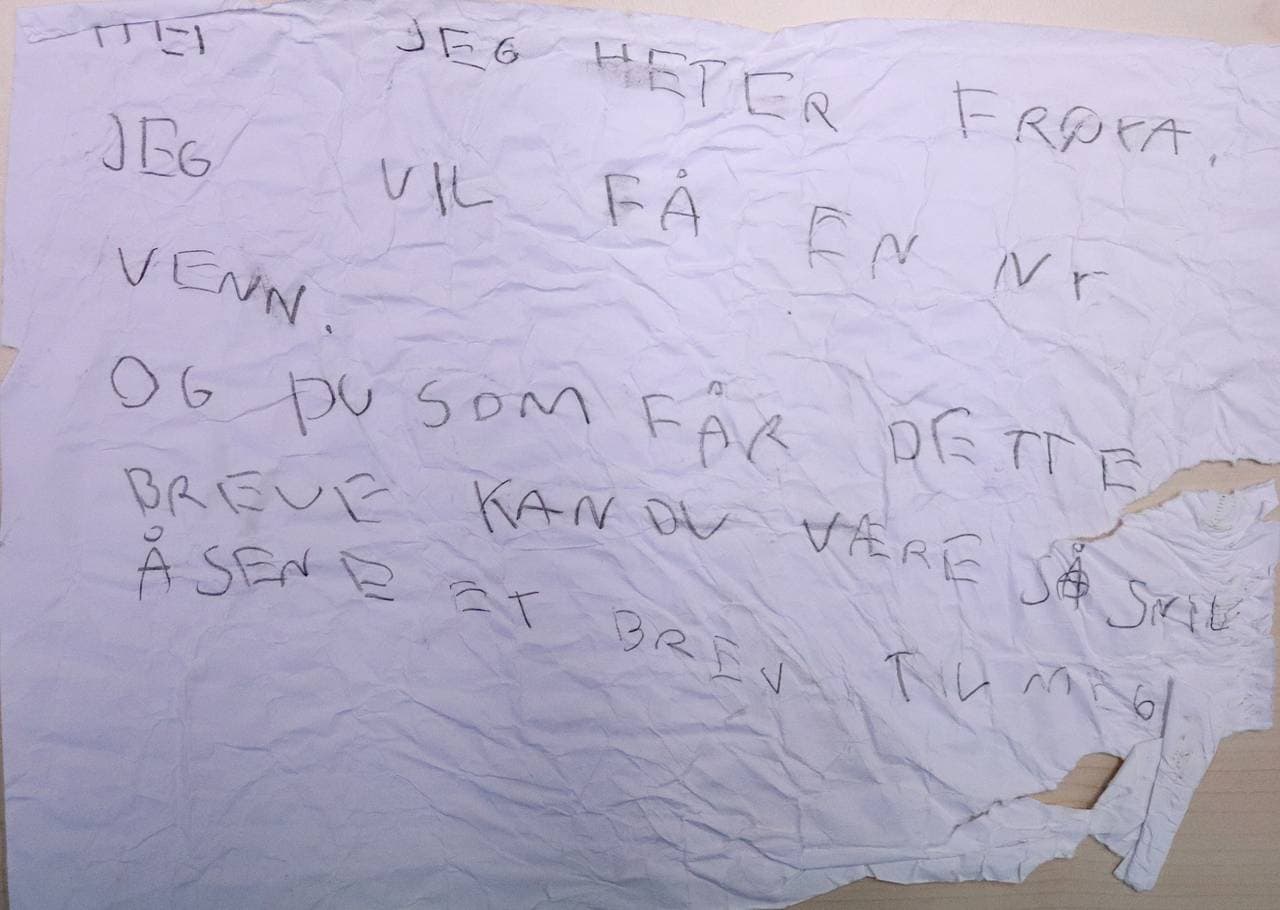 HEI JEG HETER FRØYA.
JEG VIL FÅ EN NY
VENN.
OG DU SOM FÅR DETTE
BREVE KAN DU VÆRE SÅ SNIL
Å SENE ET BREV TIL MEG